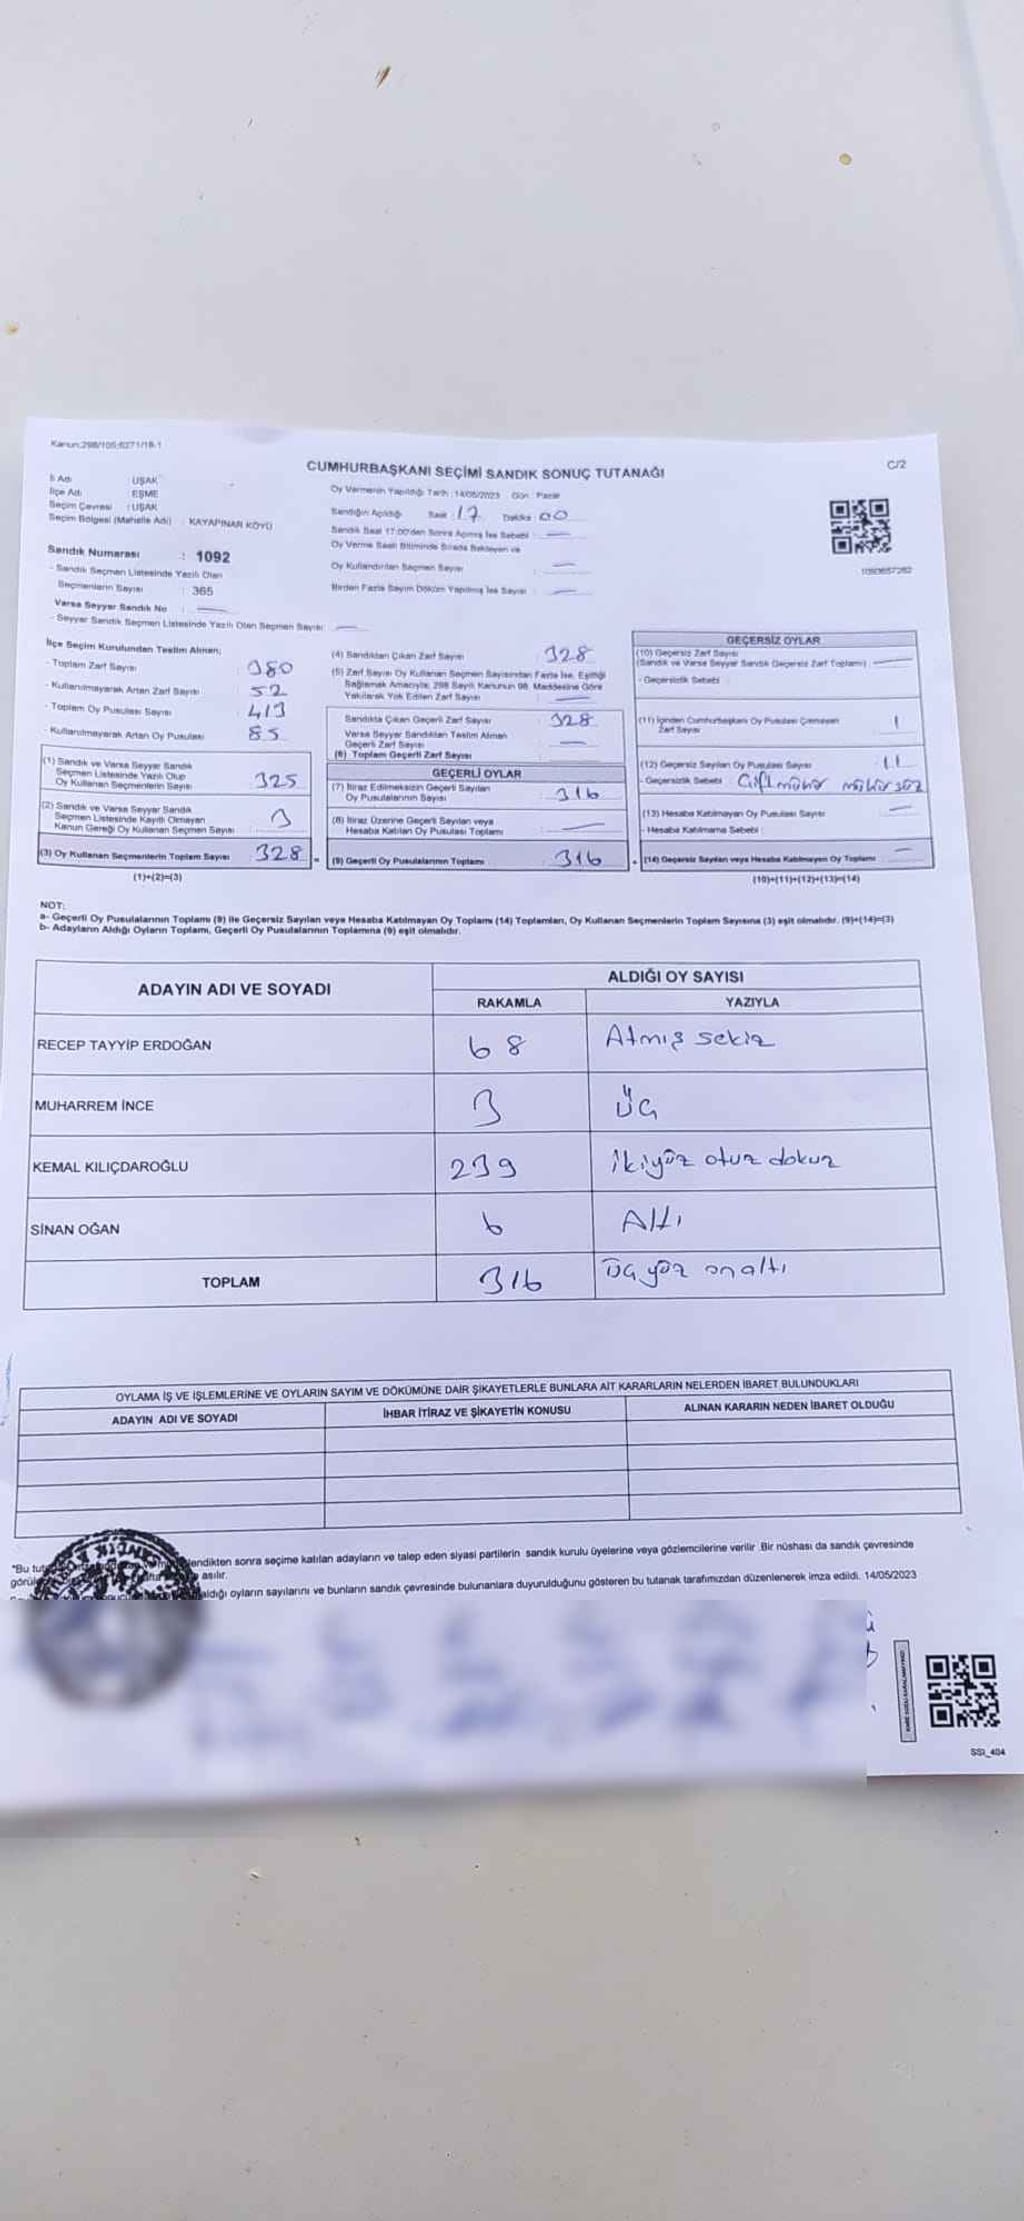 Kanun:298/105;6271/18-1
C/2
CUMHURBAŞKANI SEÇİMİ SANDIK SONUÇ TUTANAĞI
İl Adı : UŞAK
İlçe Adı : EŞME
Seçim Çevresi : UŞAK
Seçim Bölgesi (Mahalle Adı) : KAYAPINAR KÖYÜ
Sandık Numarası : 1092
- Sandık Seçmen Listesinde Yazılı Olan
Seçmenlerin Sayısı : 365
Varsa Seyyar Sandık No :
- Seyyar Sandık Seçmen Listesinde Yazılı Olan Seçmen Sayısı:
Oy Vermenin Yapıldığı Tarih : 14/05/2023 Gün : Pazar
Sandığın Açıldığı Saat : 17 Dakika : 00
Sandık Saat 17:00'den Sonra Açılmış İse Sebebi :
Oy Verme Saati Bitiminde Sırada Bekleyen ve
Oy Kullandırılan Seçmen Sayısı :
Birden Fazla Sayım Döküm Yapılmış İse Sayısı :
1090657262
İlçe Seçim Kurulundan Teslim Alınan;
- Toplam Zarf Sayısı : 380
- Kullanılmayarak Artan Zarf Sayısı : 52
- Toplam Oy Pusulası Sayısı : 413
- Kullanılmayarak Artan Oy Pusulası : 85
(1) Sandık ve Varsa Seyyar Sandık
Seçmen Listesinde Yazılı Olup
Oy Kullanan Seçmenlerin Sayısı : 325
(2) Sandık ve Varsa Seyyar Sandık
Seçmen Listesinde Kayıtlı Olmayan
Kanun Gereği Oy Kullanan Seçmen Sayısı : 3
(3) Oy Kullanan Seçmenlerin Toplam Sayısı : 328
(1)+(2)=(3)
(4) Sandıktan Çıkan Zarf Sayısı : 328
(5) Zarf Sayısı Oy Kullanan Seçmen Sayısından Fazla İse, Eşitliği
Sağlamak Amacıyla; 298 Sayılı Kanunun 98. Maddesine Göre
Yakılarak Yok Edilen Zarf Sayısı :
Sandıkta Çıkan Geçerli Zarf Sayısı : 328
Varsa Seyyar Sandıktan Teslim Alınan
Geçerli Zarf Sayısı :
(6) Toplam Geçerli Zarf Sayısı :
GEÇERLİ OYLAR
(7) İtiraz Edilmeksizin Geçerli Sayılan
Oy Pusulalarının Sayısı : 316
(8) İtiraz Üzerine Geçerli Sayılan veya
Hesaba Katılan Oy Pusulası Toplamı :
(9) Geçerli Oy Pusulalarının Toplamı : 316
GEÇERSİZ OYLAR
(10) Geçersiz Zarf Sayısı
(Sandık ve Varsa Seyyar Sandık Geçersiz Zarf Toplamı) :
- Geçersizlik Sebebi :
(11) İçinden Cumhurbaşkanı Oy Pusulası Çıkmayan
Zarf Sayısı : 1
(12) Geçersiz Sayılan Oy Pusulası Sayısı : 11
- Geçersizlik Sebebi : Çift mühür mühürsüz
(13) Hesaba Katılmayan Oy Pusulası Sayısı :
- Hesaba Katılmama Sebebi :
(14) Geçersiz Sayılan veya Hesaba Katılmayan Oy Toplamı :
(10)+(11)+(12)+(13)=(14)
NOT:
a- Geçerli Oy Pusulalarının Toplamı (9) ile Geçersiz Sayılan veya Hesaba Katılmayan Oy Toplamı (14) Toplamları, Oy Kullanan Seçmenlerin Toplam Sayısına (3) eşit olmalıdır. (9)+(14)=(3)
b- Adayların Aldığı Oyların Toplamı, Geçerli Oy Pusulalarının Toplamına (9) eşit olmalıdır.
ADAYIN ADI VE SOYADI
ALDIĞI OY SAYISI
RAKAMLA YAZIYLA
RECEP TAYYİP ERDOĞAN 68 Atmış sekiz
MUHARREM İNCE 3 üç
KEMAL KILIÇDAROĞLU 239 ikiyüz otuz dokuz
SİNAN OĞAN 6 Altı
TOPLAM 316 üçyüz onaltı
OYLAMA İŞ VE İŞLEMLERİNE VE OYLARIN SAYIM VE DÖKÜMÜNE DAİR ŞİKAYETLERLE BUNLARA AİT KARARLARIN NELERDEN İBARET BULUNDUKLARI
ADAYIN ADI VE SOYADI İHBAR İTİRAZ VE ŞİKAYETİN KONUSU ALINAN KARARIN NEDEN İBARET OLDUĞU
*Bu sonra seçime katılan adayların ve talep eden siyasi partilerin sandık kurulu üyelerine veya gözlemcilerine verilir .Bir nüshası da sandık çevresinde
asılır.
aldığı oyların sayılarını ve bunların sandık çevresinde bulunanlara duyurulduğunu gösteren bu tutanak tarafımızdan düzenlenerek imza edildi. 14/05/2023
SSI_404